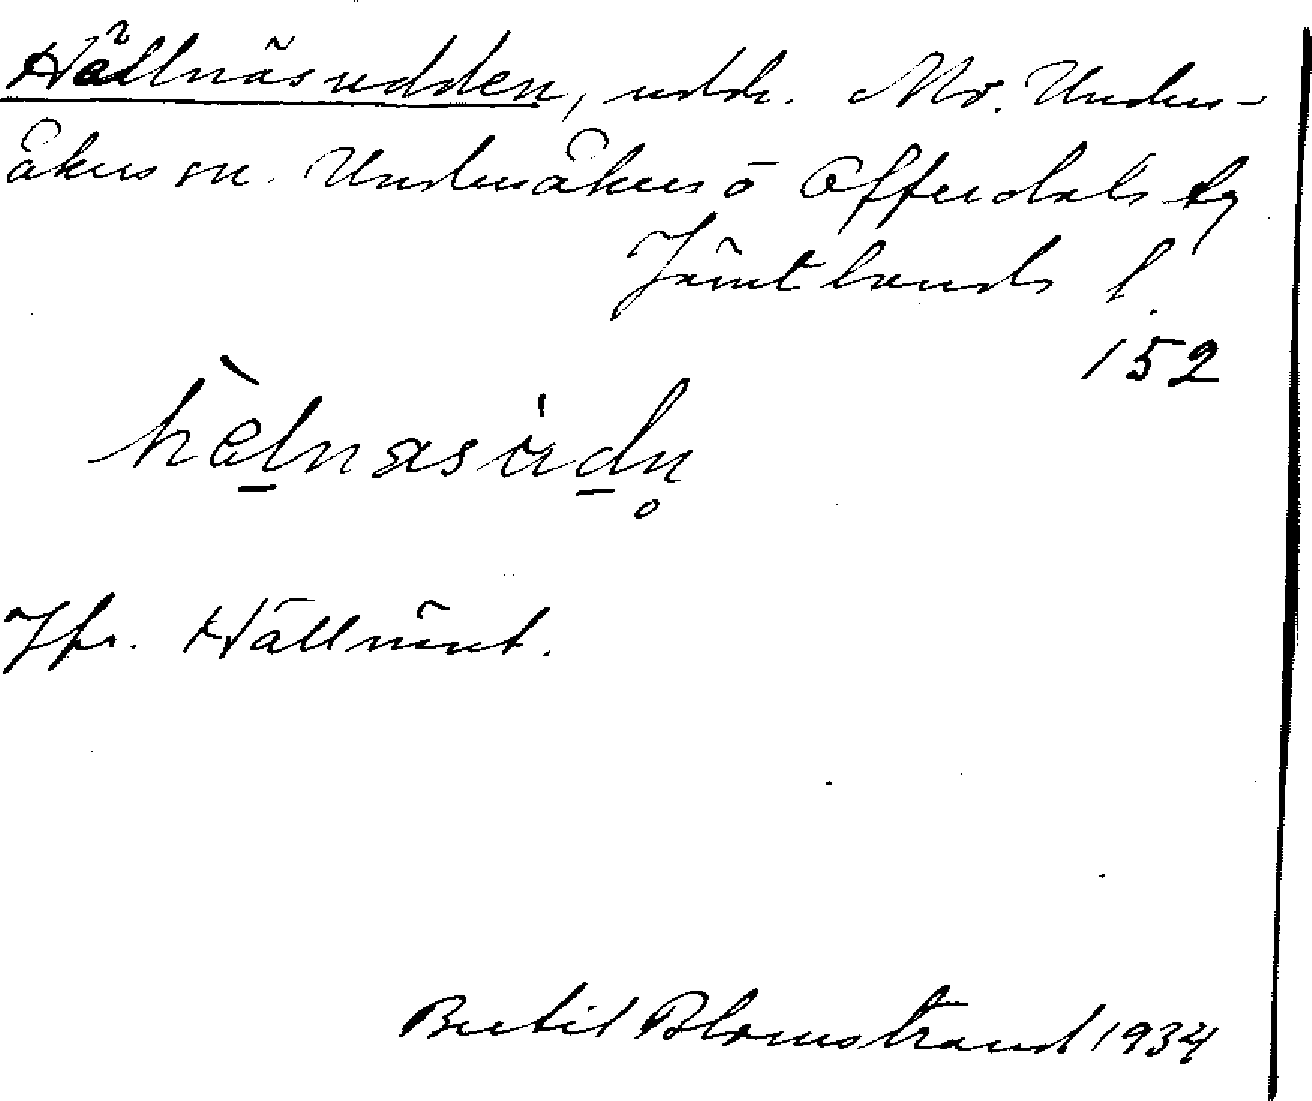 Hällnäsudden, udde. Mo. Unders-
åkers sn. Undersåkers o Offerdals tg
Jämtlands l.
152
Jfr. Hällnäset.
Bertil Blomstrand 1934